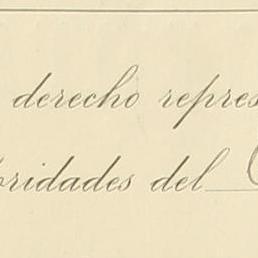 derecho repres
ridades del